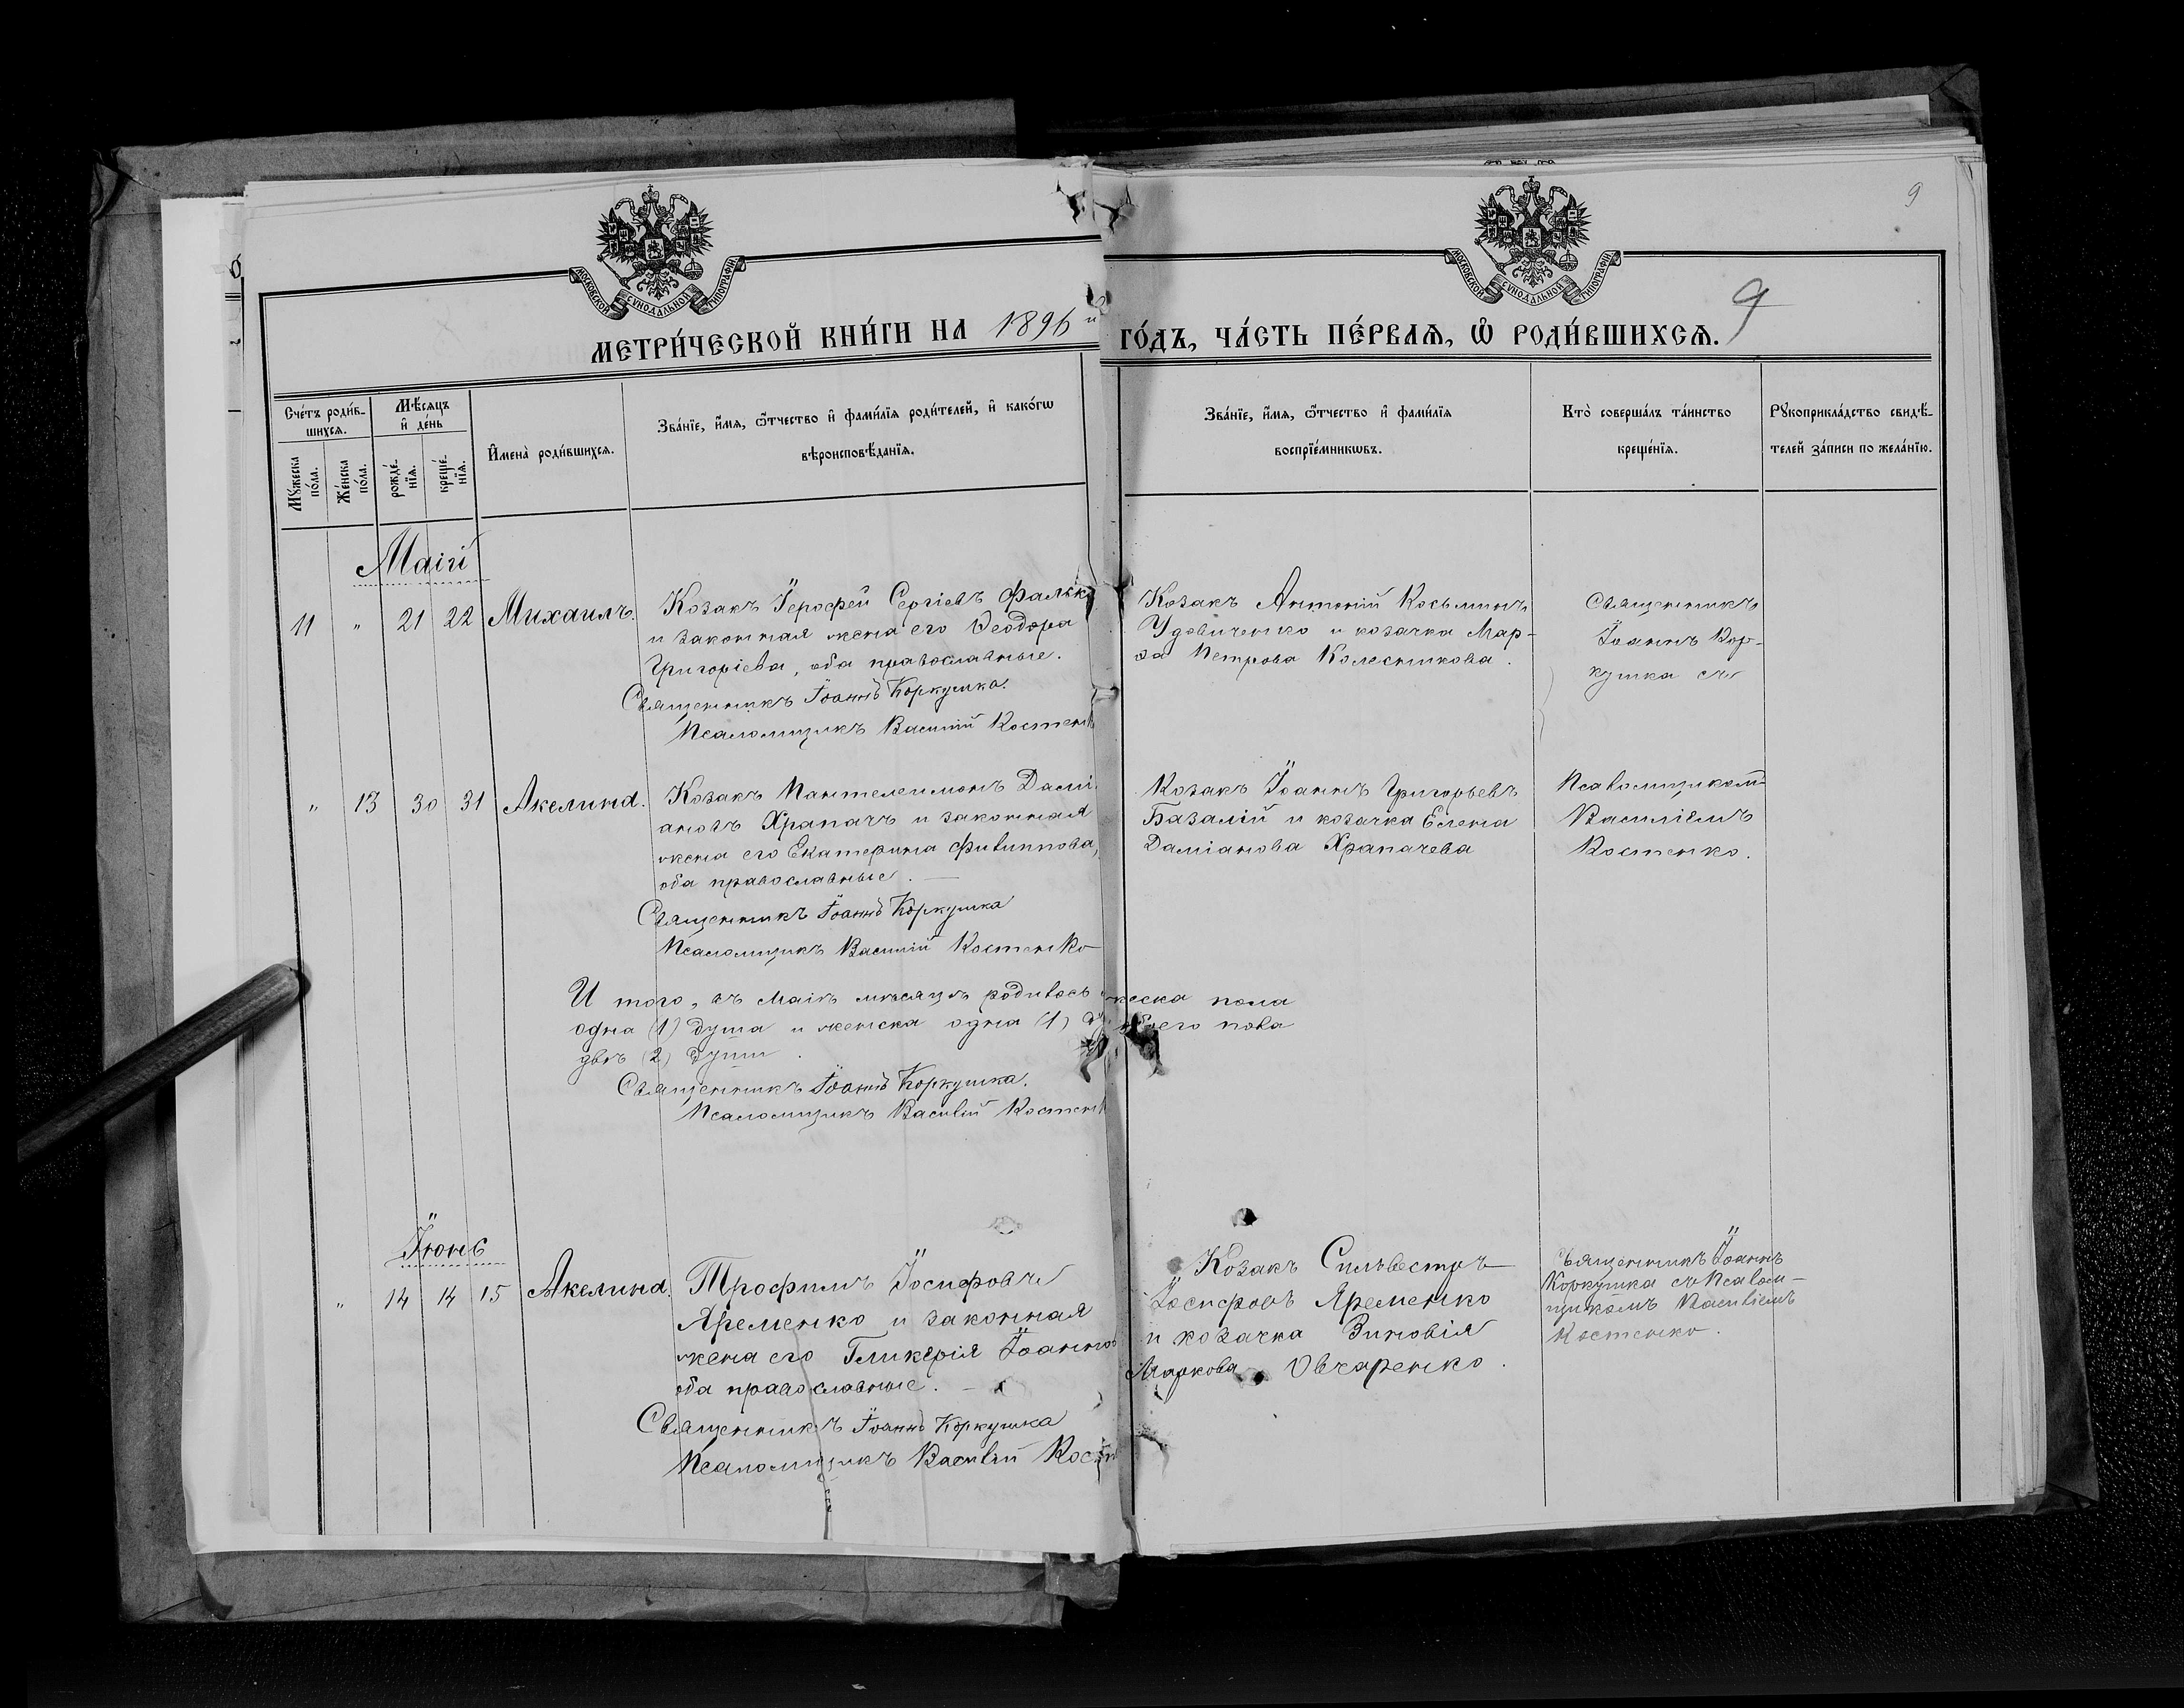 9
МОСКОВСКОЙ СѴНОДАЛЬНОЙ ТИПОГРАФІИ
МОСКОВСКОЙ СѴНОДАЛЬНОЙ ТИПОГРАФІИ
МЕТРИ́ЧЕСКОЙ КНИ́ГИ НА 1896 й ГО́ДЪ, ЧА́СТЬ ПЕ́РВАѦ, Ѽ РОДИ́ВШИХСѦ. 9
Сче́тъ роди́вшихсѧ.
Мꙋ́жеска по́ла.
Же́нска по́ла.
Мѣ́сѧцъ и҆ де́нь
рожде́нїѧ.
креще́нїѧ.
И҆мена̀ роди́вшихсѧ.
Зва́нїе, и҆́мѧ, ѻ҆́тчество и҆ фами́лїѧ роди́телей, и҆ како́гѡ
вѣроисповѣ́данїѧ.
Зва́нїе, и҆́мѧ, ѻ҆́тчество и҆ фами́лїѧ
воспрїе́мникѡвъ.
Кто̀ соверша́лъ та́инство
креще́нїѧ.
Рꙋкоприкла́дство свидѣ́-
телей за́писи по жела́нїю.
Маій
11 " 21 22 Михаилъ.
Козакъ Іерофей Сергіевъ Фальк
и законная жена его Ѳеодора
Григоріева, оба православные.
Священникъ Іоаннъ Коркушка.
Псаломщикъ Василій Костен
Козакъ Антоній Косьминъ
Удовиченко и козачка Мар-
ѳа Петрова Колесникова.
Священникъ
Іоаннъ Кор-
кушка съ
" 13 30 31 Акелина.
Козакъ Пантелеимонъ Дамі-
ановъ Храпачъ и законная
жена его Екатерина Филиппова,
оба православные.
Священникъ Іоаннъ Коркушка
Псаломщикъ Василій Костенко
Козакъ Іоаннъ Григорьевъ
Базалій и козачка Елена
Даміанова Храпачева
Псаломщикомъ
Василіемъ
Костенко.
И того, въ Маіѣ мѣсяцѣ родилось жеска пола
одна (1) душа и женска одна (1) обоего пола
двѣ (2) души.
Священникъ Іоаннъ Коркушка.
Псаломщикъ Василій Костен
Іюнь
" 14 14 15 Акелина.
Трофимъ Іосифовъ
Яременко и законная
жена его Гликерія Іоаннов
оба православные.
Священникъ Іоаннъ Коркушка
Псаломщикъ Василій Костен
Козакъ Сильвестръ
Іосифовъ Яременко
и козачка Зиновія
Маркова Овчаренко.
Священникъ Іоаннъ
Коркушка съ Псалом-
щикомъ Василіемъ
Костенко.